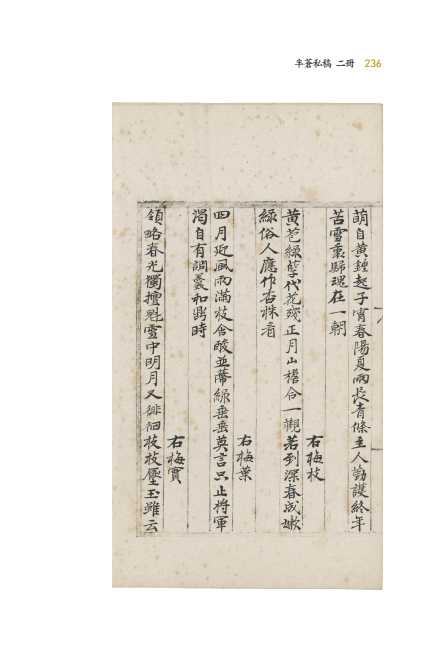 半蒼私稿 二冊 236
萌自黃鍾起子宵春陽夏雨長青條主人勤護終年
苦雪裏歸魂在一朝
右梅枝
黃苞綠萼代花殘正月山榴合一觀若到深春成嫩
綠俗人應作杏株看
右梅葉
四月迎風雨滿枝含酸並蔕綠垂垂莫言只止將軍
渴自有調羹和鼎時
右梅實
領略春光獨擅魁雪中明月又徘徊枝枝壓玉雖云